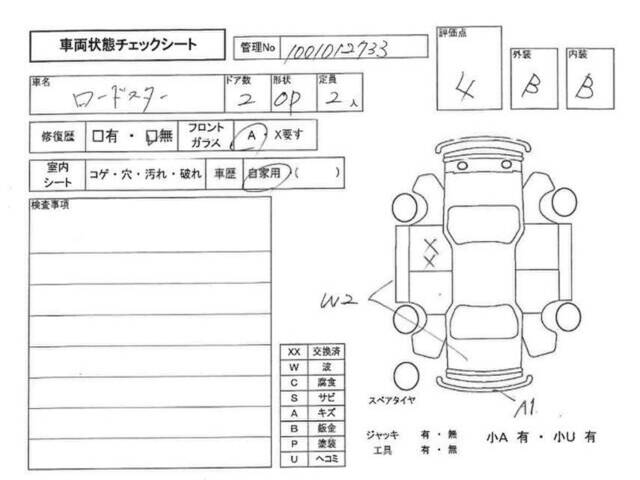 車両状態チェックシート
管理No 1001012733
評価点 4
外装 B
内装 B
車名 ロードスター
ドア数 2
形状 OP
定員 2人
修復歴 □有・□無
フロントガラス A・X要す
室内シート コゲ・穴・汚れ・破れ
車歴 自家用・( )
検査事項
XX
W2
XX 交換済
W 波
C 腐食
S サビ
A キズ
B 鈑金
P 塗装
U ヘコミ
スペアタイヤ
A1
ジャッキ 有・無
工具 有・無
小A 有・小U 有